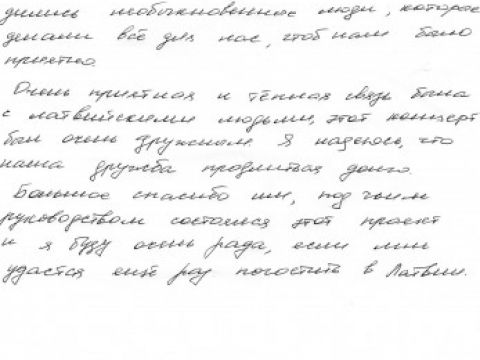 дились необыкновенные люди, которые
делали всё для нас, чтоб нам было
приятно.
Очень приятная и тёплая связь была
с латвийскими людьми, этот концерт
был очень дружным. Я надеюсь, что
наша дружба продлиться долго.
Большое спасибо им, под чьим
руководством состоялся этот проект
и я буду очень рада, если мне
удастся ещё раз погостить в Латвии.